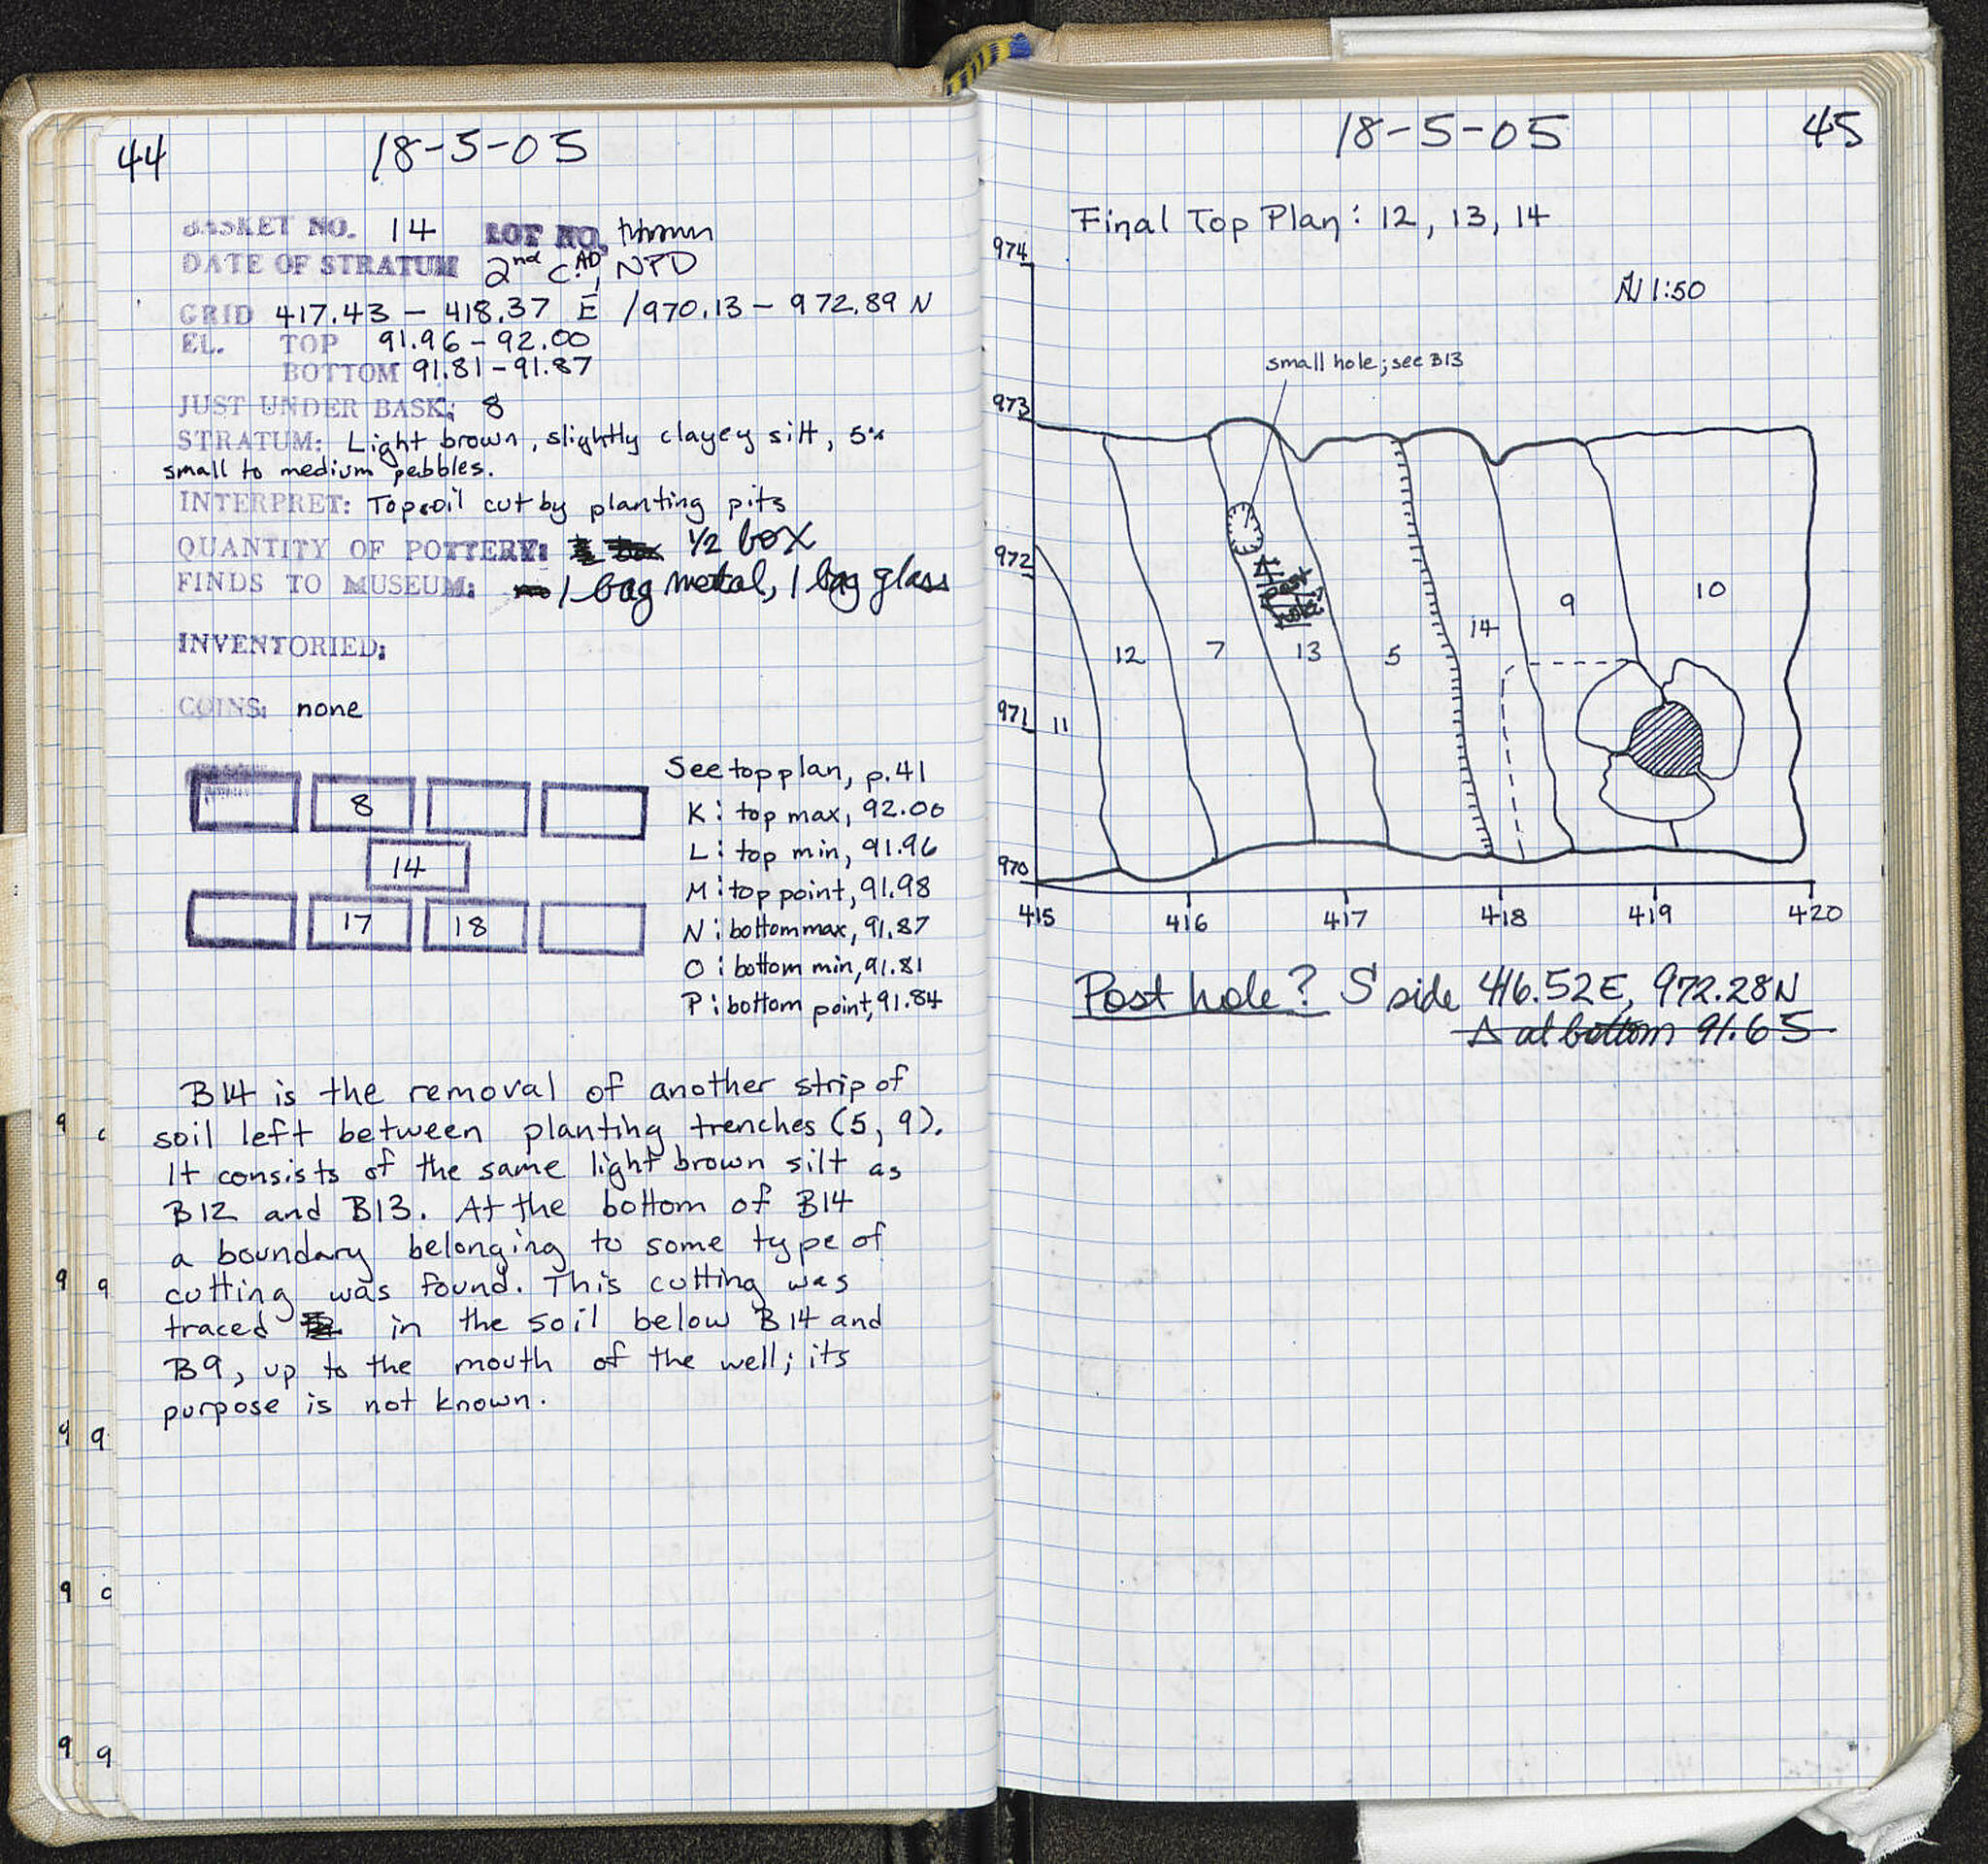 44
18-5-05
BASKET NO. 14 LOT NO.
DATE OF STRATUM 2nd C. AD, NPD
GRID 417.43 – 418.37 E / 970.13 – 972.89 N
EL. TOP 91.96 – 92.00
BOTTOM 91.81 – 91.87
JUST UNDER BASK: 8
STRATUM: Light brown, slightly clayey silt, 5%
small to medium pebbles.
INTERPRET: Topsoil cut by planting pits
QUANTITY OF POTTERY: 1/2 box
FINDS TO MUSEUM: 1 bag metal, 1 bag glass
INVENTORIED:
COINS: none
8
14
17 18
See top plan, p. 41
K: top max, 92.00
L: top min, 91.96
M: top point, 91.98
N: bottom max, 91.87
O: bottom min, 91.81
P: bottom point, 91.84
B14 is the removal of another strip of
soil left between planting trenches (5, 9).
It consists of the same light brown silt as
B12 and B13. At the bottom of B14
a boundary belonging to some type of
cutting was found. This cutting was
traced in the soil below B14 and
B9, up to the mouth of the well; its
purpose is not known.
18-5-05
45
Final Top Plan: 12, 13, 14
974
N 1:50
small hole; see B13
973
972
10
9
14
12 7 13 5
971
11
970
415 416 417 418 419 420
Post hole? S side 416.52E, 972.28N
Δ at bottom 91.65